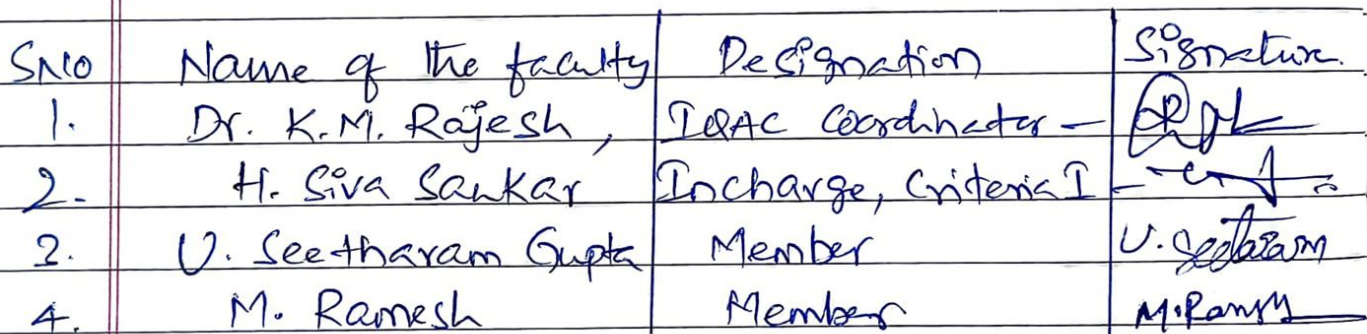 SNO Name of the faculty Designation Signature.
1. Dr. K.M. Rajesh, IQAC Coordinator -
2. H. Siva Sankar Incharge, Criteria I -
3. U. Seetharam Gupta Member U. Seetaram
4. M. Ramesh Member M.Ramesh